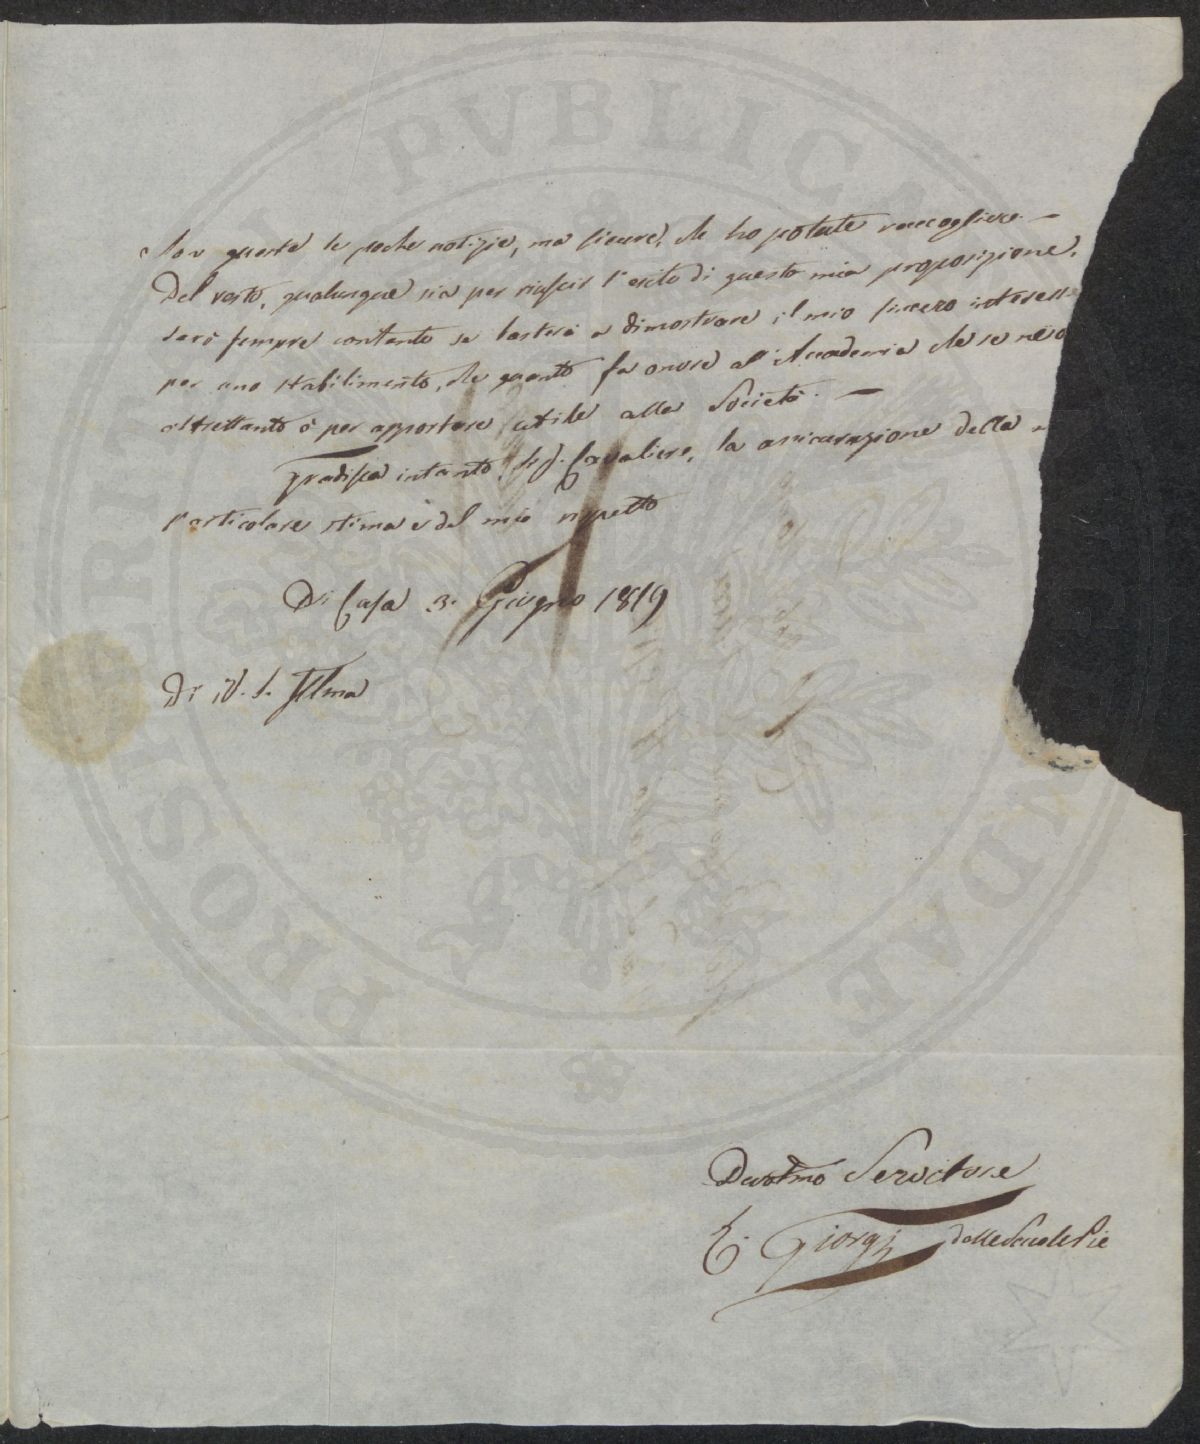 Son queste le poche notizie, ma sicure, che ho potute raccogliere. —
Del resto, qualunque sia per riuscir l'esito di questa mia proposizione,
sarò sempre contento se basterà a dimostrare il mio sincero interess
per uno stabilimento, che quanto fa onore all'Accademia che se ne o
altrettanto è per apportare utile alla Società. —
Gradisca intanto, Sig. Cavaliere, la assicurazione della
particolare stima e del mio rispetto
Di Casa 3. Giugno 1819
Di V. S. Illma
Devotmo Servitore
Giorgi delle Scuole Pie
PROSPERITATI PVBLICAE